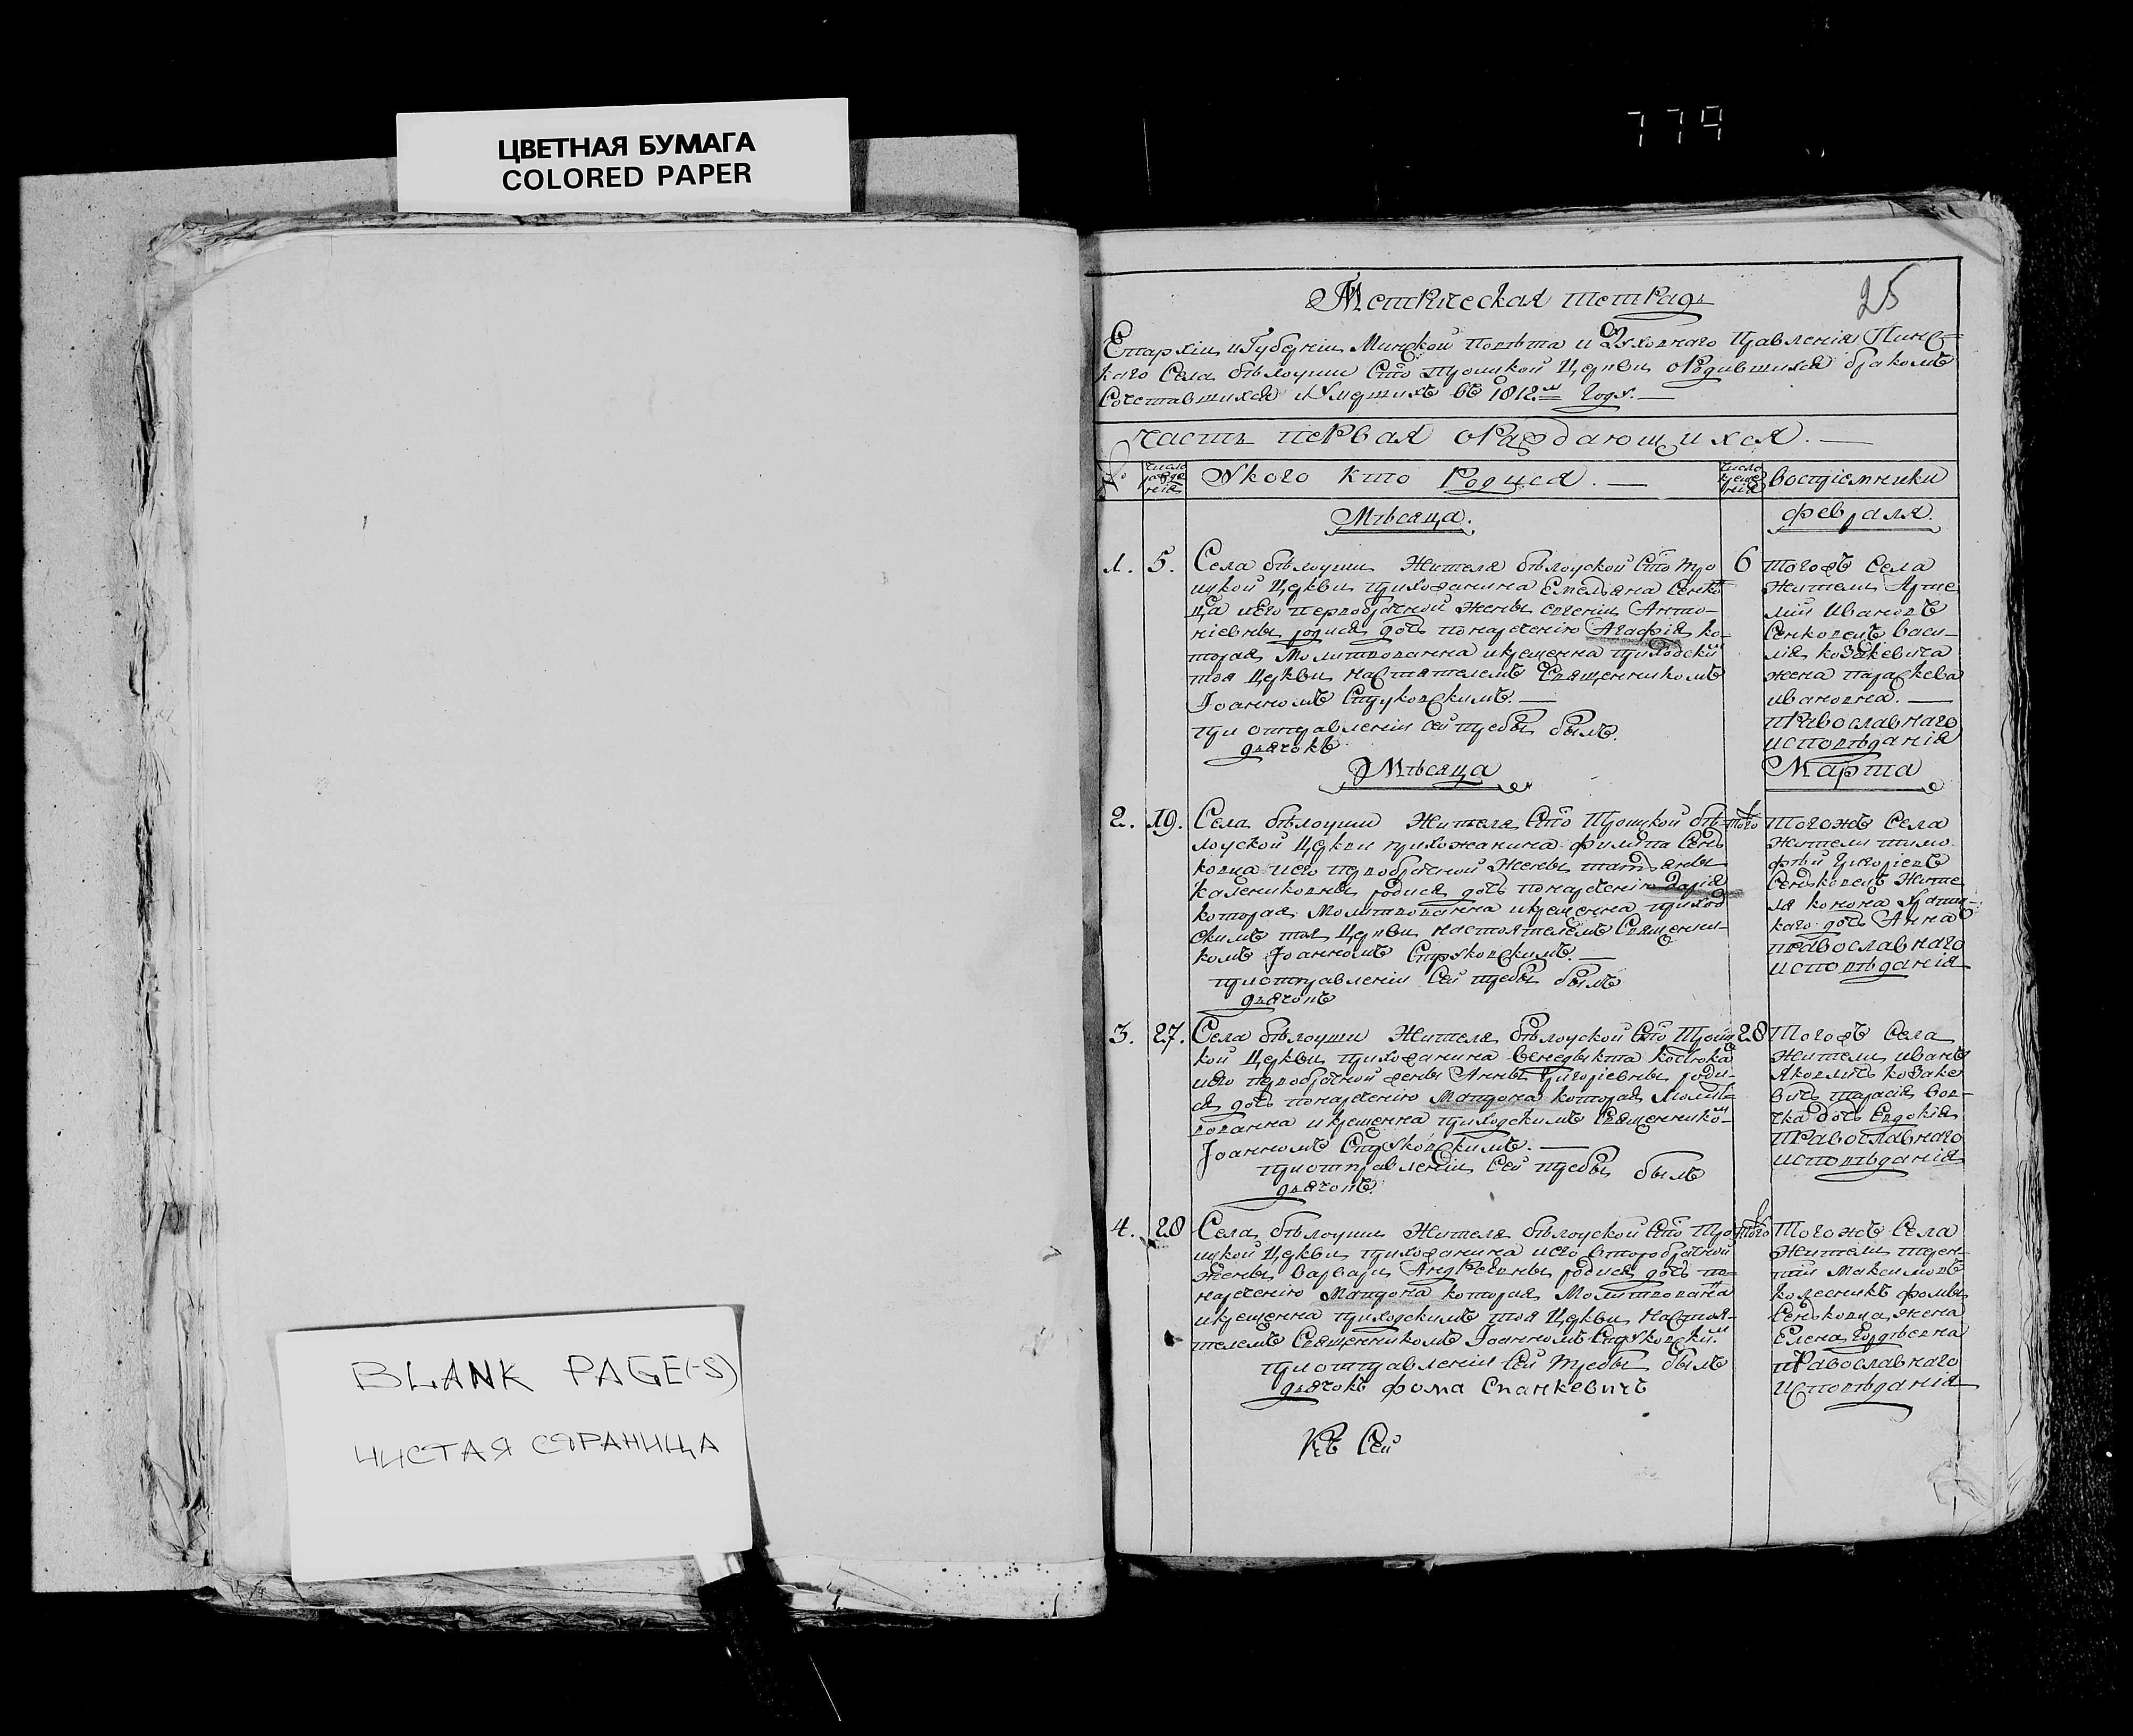 ЦВЕТНАЯ БУМАГА
COLORED PAPER
779
25
Метрическая тетрадь
Епархіи и Губерніи Минской повѣта и Духовнаго Правленія Пинс-
каго Села бѣлоуши Сто троицкой Церкви о Родившихся бракомъ
Сочетавшихся и Умершихъ въ 1812м Году. —
Часть первая о Раждающихся. —
№
число рожде нія
У кого кто Родися. —
число креще нія
воспріемники
Мѣсяца.
февраля.
1. 5.
Села бѣлоуши Жителя бѣлоуской Сто тро
ицкой Церкви прихожанина Емельяна Сенко
ца и его первобрачной Жены евгеніи Анто-
ніевны родися дочь по нареченію Агафія ко-
торая Молитвованна и крещенна приходски
тоя Церкви Настоятелемъ Священникомъ
Іоанномъ Струковскимъ. —
при отправленіи сей требы былъ.
дьячокъ
6
тогожъ Села
Жители Арте
мій Ивановъ
Сенковецъ Васи-
лія козакевича
жена параскева
ивановна. —
православнаго
исповѣданія
Мѣсяца
Марта
2. 19.
Села бѣлоуши Жителя Сто Троицкой бѣ-
лоуской Церкви прихожанина филипа Сень
ковца и его первобрачной Жены татьяны
Калениковны родися дочь по нареченію Дарія
которая Молитвованна и крещенна приход
скимъ тоя Церкви настоятелемъ Священни-
комъ Іоанномъ Струковскимъ. —
при отправленіи Сей требы былъ
дьячокъ
того
тогожъ Села
Жители тимо
фѣй Григоріевъ
Сеньковецъ Жите
ля конона
каго дочь Анна
православнаго
исповѣданія
3. 27.
Села бѣлоуши Жителя бѣлоуской Сто Троиц
кой Церкви прихожанина венедыкта костюка
и его первобрачной жены Анны Григоріевны роди-
ся дочь по нареченію Матрона которая Молит-
вованна и крещенна приходскимъ Священнико-м
Іоанномъ Струковскимъ. —
при отправленіи Сей требы былъ
дьячокъ.
28
Тогожъ Села
Жители иванъ
Яковличъ козаке
вичъ тарасія вов-
чка дочь Евдокія
Православнаго
исповѣданія
4. 28
Села бѣлоуши Жителя бѣлоуской Сто Тро
ицкой Церкви прихожанина и его второбрачной
Жены варвары Андреевны родися дочь по-
нареченію Матрона которая Молитвованна
и крещенна приходскимъ тоя Церкви Настоя-
телемъ Священникомъ Іоанномъ Струковским
при отправленіи Сей требы былъ
дьячокъ фома Станкевичъ
того
Тогожъ Села
Жители терен-
тій Максимовъ
колесникъ фомы
Сеньковца жена
Елена Гордѣевна
православнаго
исповѣданія
Къ Сей
BLANK PAGE(-S)
ЧИСТАЯ СТРАНИЦА